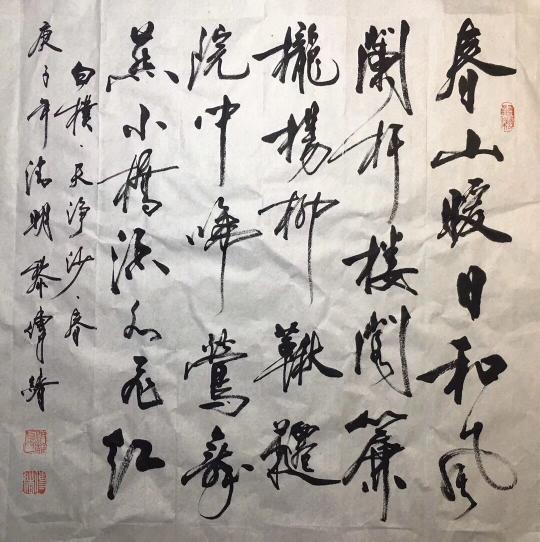 春山暖日和風
闌杆樓閣簾
櫳楊柳鞦韆
院中啼鶯舞
燕小橋流水飛紅
白樸·天淨沙·春
庚子年清明